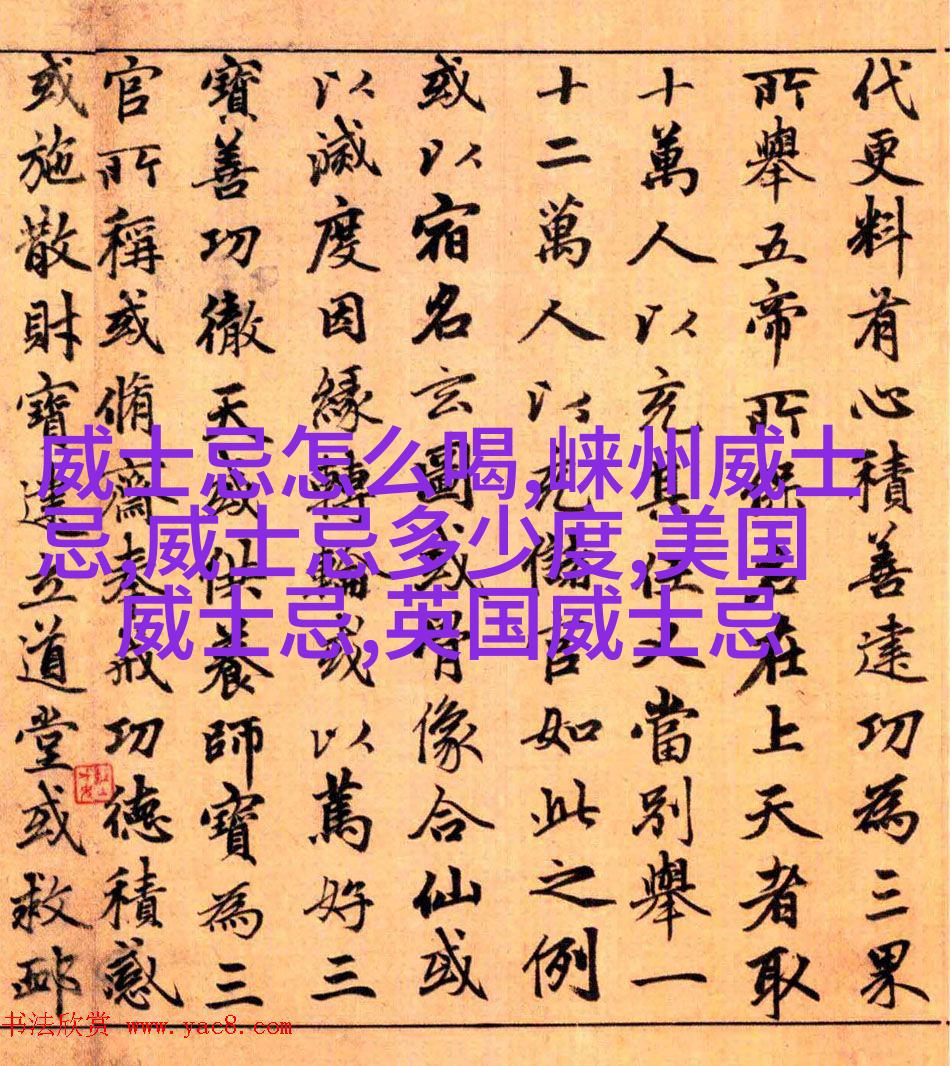 代更料有心積善建功為三果
所舉五帝所保在上天者取
十萬人以充其任又當別舉一
十二萬人以充儲官如此之例
或以宿名玄圖或骨像合仙或
以滅度因緣轉輪或以篤好三
寶善功徹天或供養師寶為三
官所稱或脩齋奉戒功德積感
或施散財寶建立道堂或救卹
威士忌怎么喝,崃州威士
忌,威士忌多少度,美国
威士忌,英国威士忌
书法欣赏 www.yac8.com